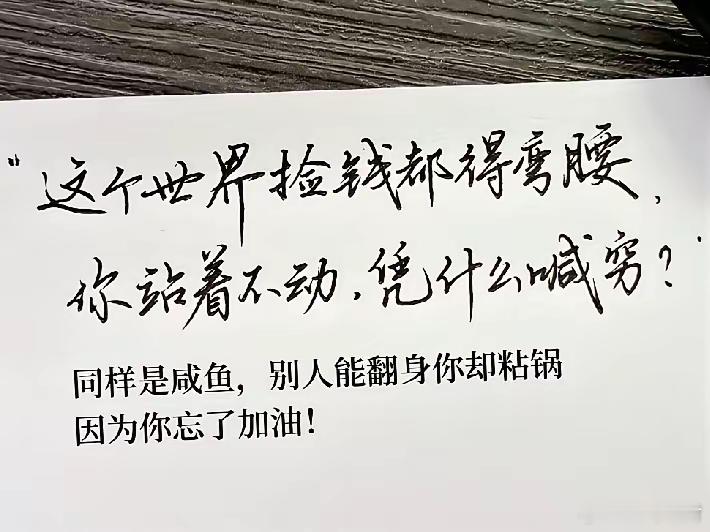 "这个世界捡钱都得弯腰,
你站着不动,凭什么喊穷?"
同样是咸鱼，别人能翻身你却粘锅
因为你忘了加油！